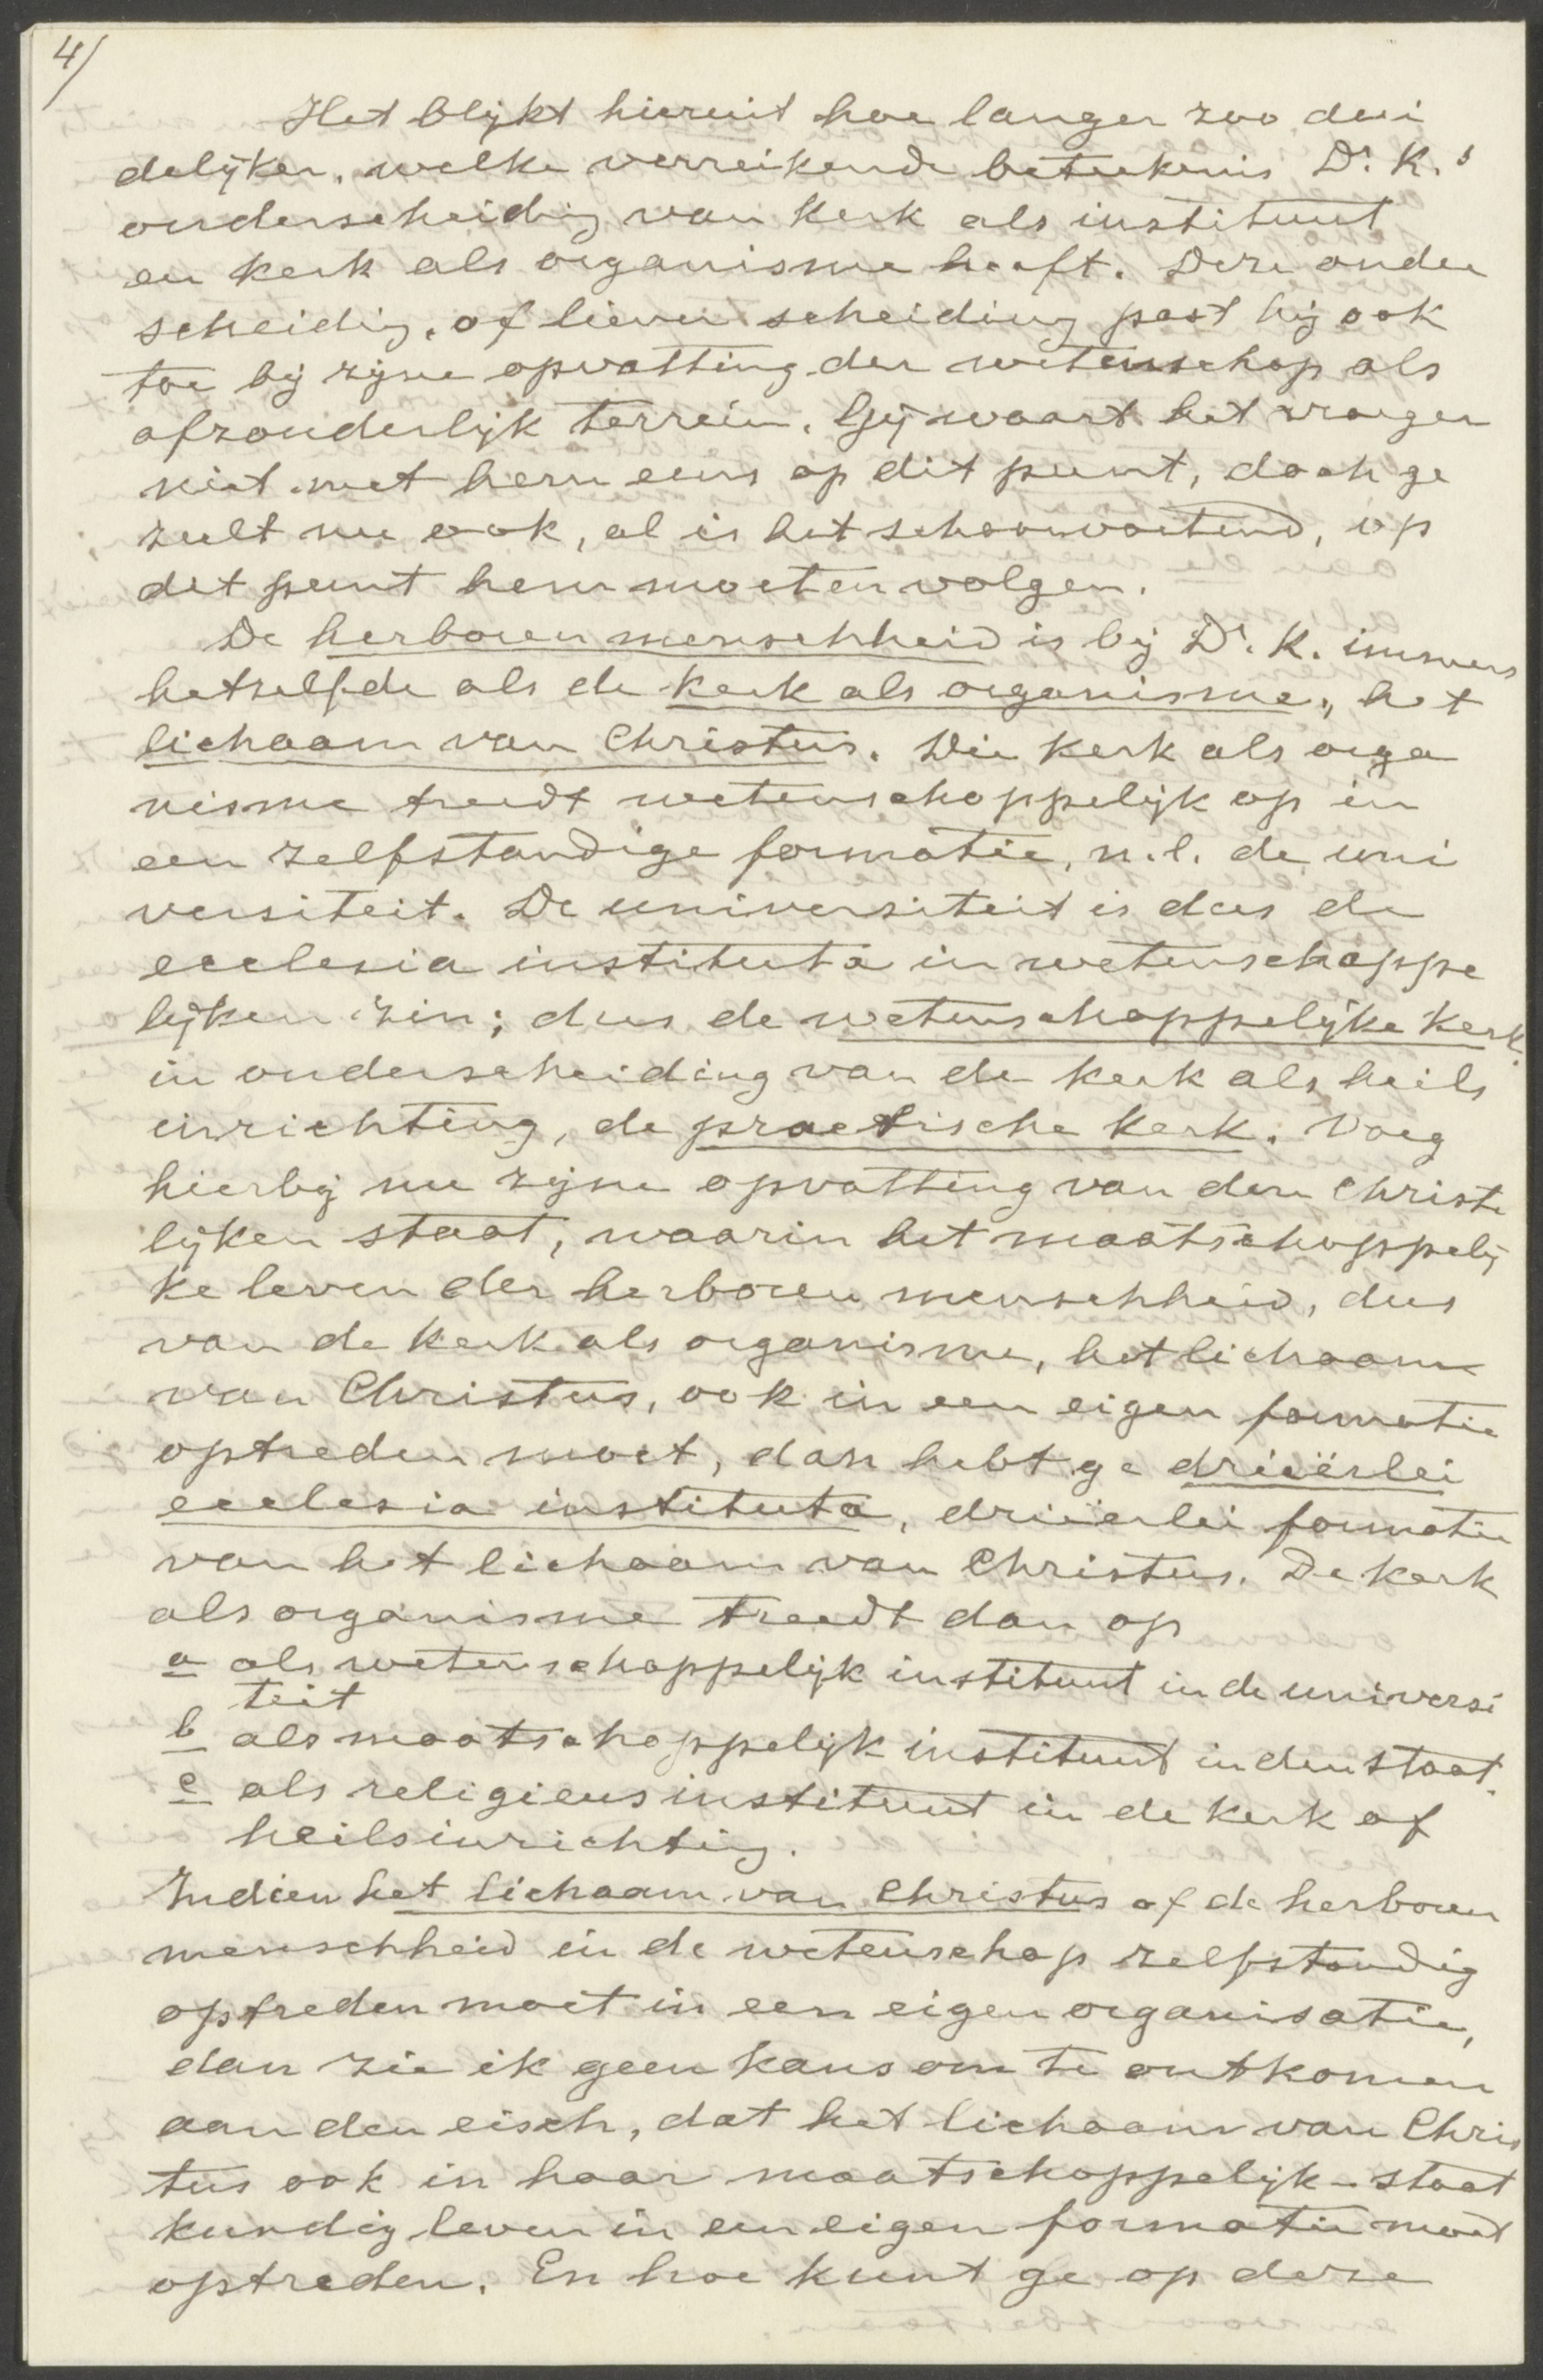 4/
Het blijkt hieruit hoe langer zoo dui
delijker, welke verreikende beteekenis Dr. K.'s
onderscheiding van kerk als instituut
en kerk als organisme heeft. Deze onder
scheiding, of liever scheiding past hij ook
toe bij zijne opvatting der wetenschap als
afzonderlijk terrein. Gij waart het vroeger
niet met hem eens op dit punt, doch ge
zult nu ook, al is het schoorvoetend, op
dit punt hem moeten volgen.
De herboren menschheid is bij Dr. K. immers
hetzelfde als de kerk als organisme, het
lichaam van Christus. Die kerk als orga
nisme treedt wetenschappelijk op in
een zelfstandige formatie, n.l. de uni
versiteit. De universiteit is dus de
ecclesia instituta in wetenschappe
lijken zin; dus de wetenschappelijke kerk
in onderscheiding van de kerk als heils
inrichting, de practische kerk. Voeg
hierbij nu zijne opvatting van den Christe
lijken staat, waarin het maatschappelij
ke leven der herboren menschheid, dus
van de kerk als organisme, het lichaam
van Christus, ook in een eigen formatie
optreden moet, dan hebt ge drieërlei
ecclesia instituta, drieërlei formatie
van het lichaam van Christus. De kerk
als organisme treedt dan op
a als wetenschappelijk instituut in de universi
teit
b als maatschappelijk instituut in den staat.
c als religieus instituut in de kerk of
heilsinrichting.
Indien het lichaam van Christus of de herboren
menschheid in de wetenschap zelfstandig
optreden moet in een eigen organisatie,
dan zie ik geen kans om te ontkomen
aan den eisch, dat het lichaam van Chris
tus ook in haar maatschappelijk-staat
kundig leven in een eigen formatie moet
optreden. En hoe kunt ge op deze